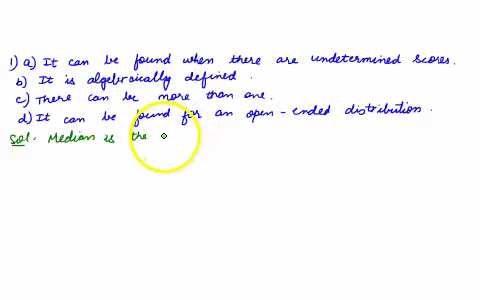 1) a) It can be found when there are undetermined scores.
b) It is algebraically defined.
c) There can be more than one.
d) It can be found for an open-ended distribution.
Sol. Median is the